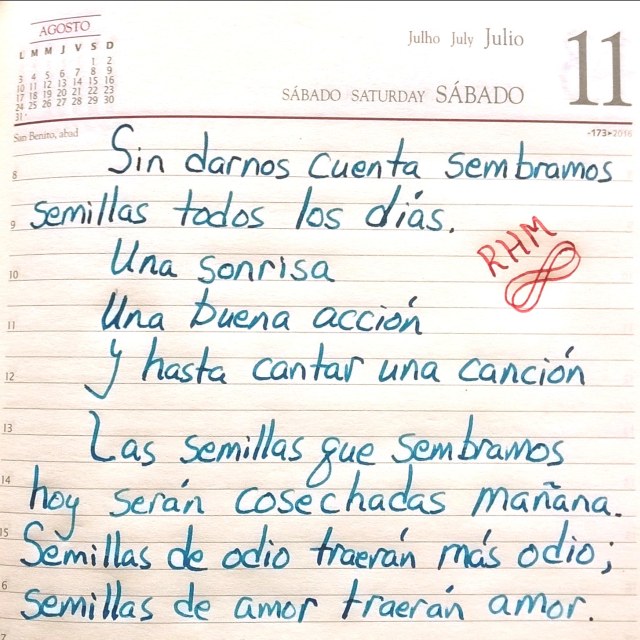 AGOSTO
L M M J V S D
1 2
3 4 5 6 7 8 9
10 11 12 13 14 15 16
17 18 19 20 21 22 23
24 25 26 27 28 29 30
31
Julho July Julio
11
SÁBADO SATURDAY SÁBADO
San Benito, abad
-173▸2016
8 Sin darnos cuenta sembramos
9 semillas todos los días.
RHM
10 Una sonrisa
11 Una buena acción
12 Y hasta cantar una canción
13 Las semillas que sembramos
14 hoy serán cosechadas mañana.
15 Semillas de odio traerán más odio;
6 semillas de amor traerán amor.
7